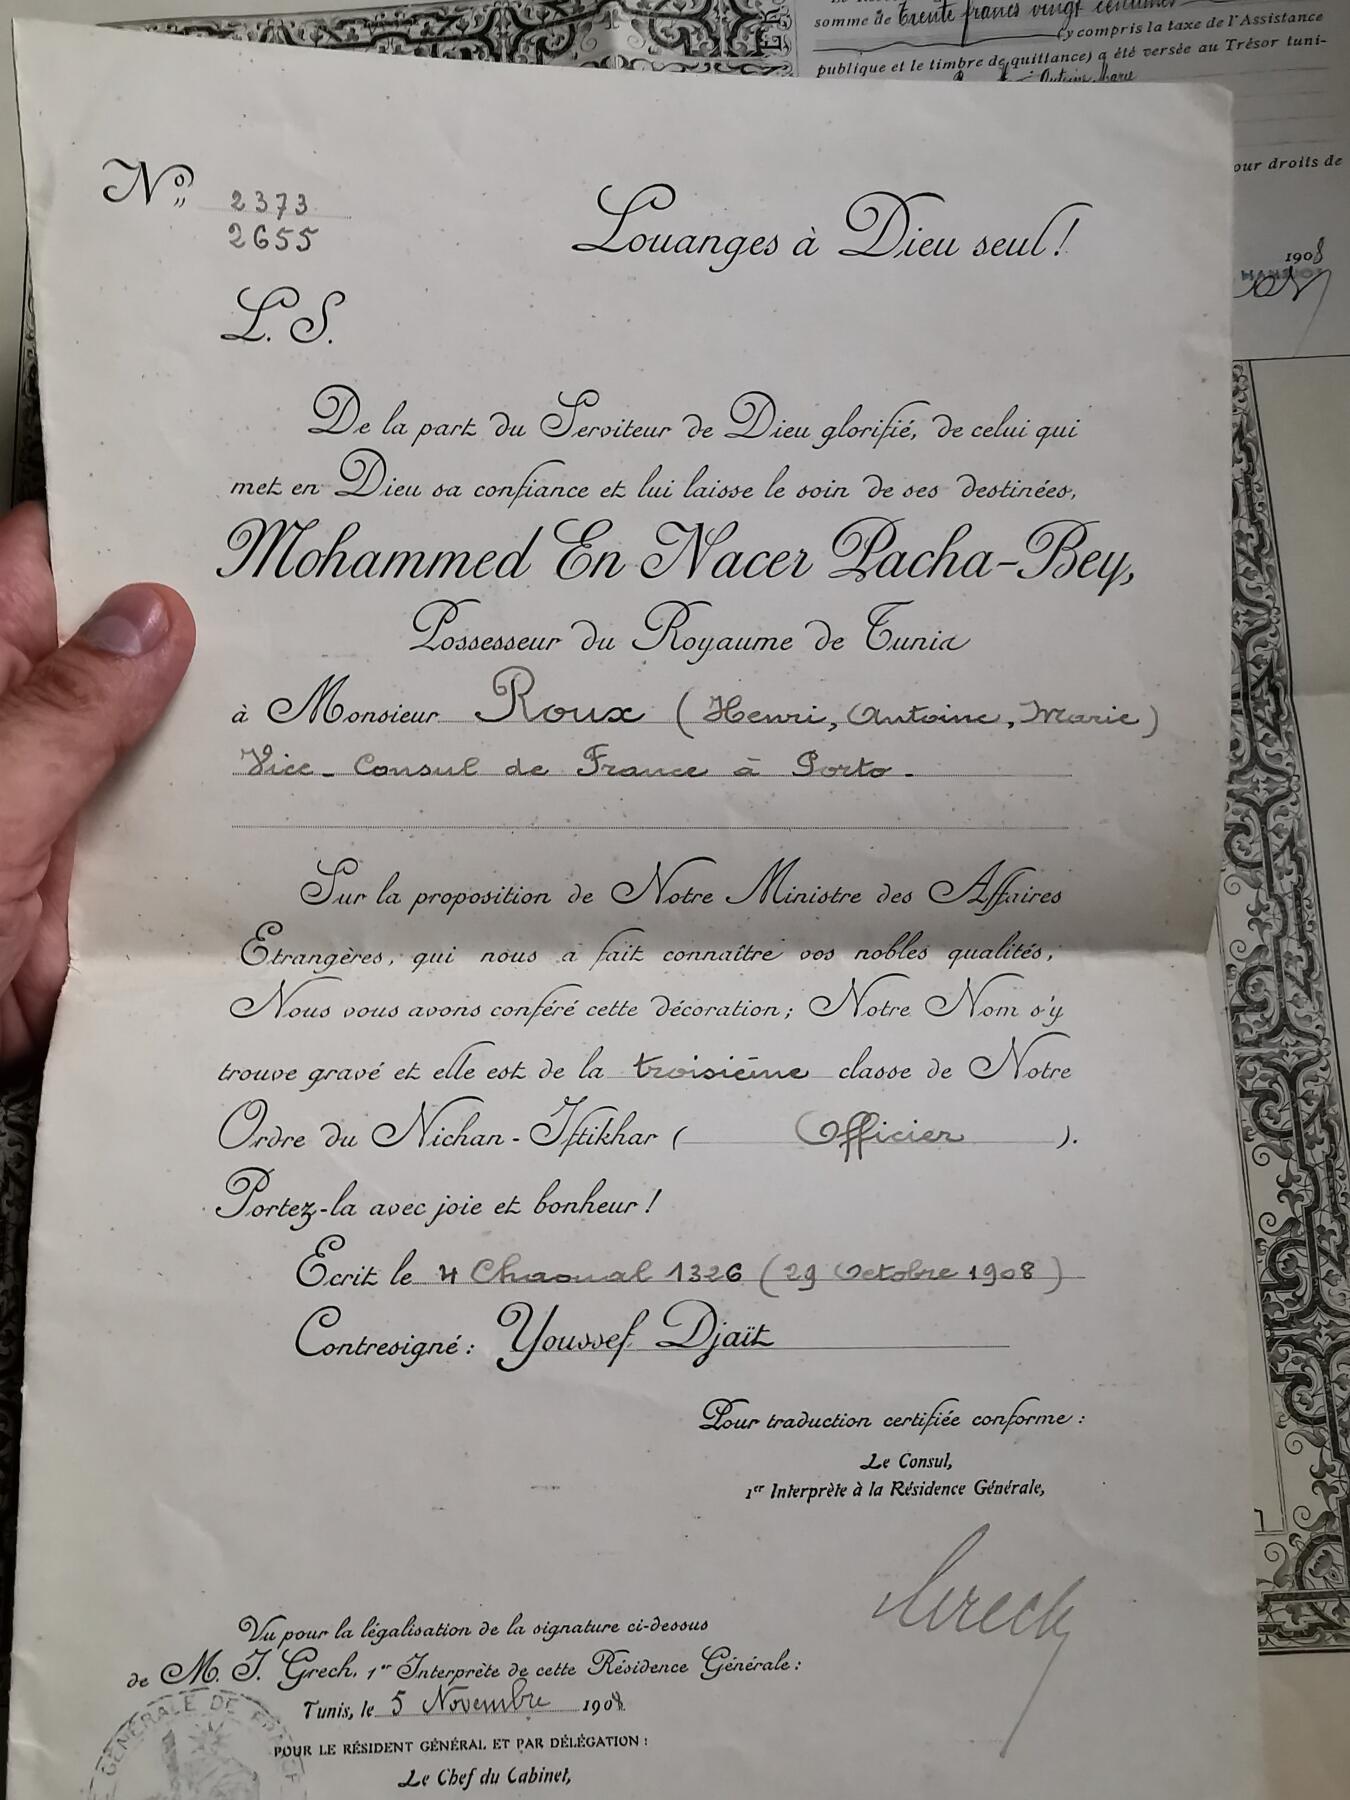 somme de trente francs vingt centimes
(y compris la taxe de l'Assistance
publique et le timbre de quittance) a été versée au Trésor tuni-
Antoine Marie
our droits de
1908
N° 2373
2655
Louanges à Dieu seul!
L. S.
De la part du Serviteur de Dieu glorifié, de celui qui
met en Dieu sa confiance et lui laisse le soin de ses destinées,
Mohammed En Nacer Pacha-Bey,
Possesseur du Royaume de Tunis
à Monsieur Roux (Henri, Antoine, Marie)
Vice-Consul de France à Porto.
Sur la proposition de Notre Ministre des Affaires
Etrangères, qui nous a fait connaître vos nobles qualités,
Nous vous avons conféré cette décoration; Notre Nom s'y
trouve gravé et elle est de la troisième classe de Notre
Ordre du Nichan-Iftikhar ( Officier ).
Portez-la avec joie et bonheur!
Ecrit le 4 Chaoual 1326 (29 Octobre 1908)
Contresigné: Youssef Djaït
Pour traduction certifiée conforme:
Le Consul,
1er Interprète à la Résidence Générale,
Grech
Vu pour la légalisation de la signature ci-dessus
de M. I. Grech, 1er Interprète de cette Résidence Générale:
Tunis, le 5 Novembre 1908
POUR LE RÉSIDENT GÉNÉRAL ET PAR DÉLÉGATION:
Le Chef du Cabinet,
GÉNÉRALE DE FRANCE